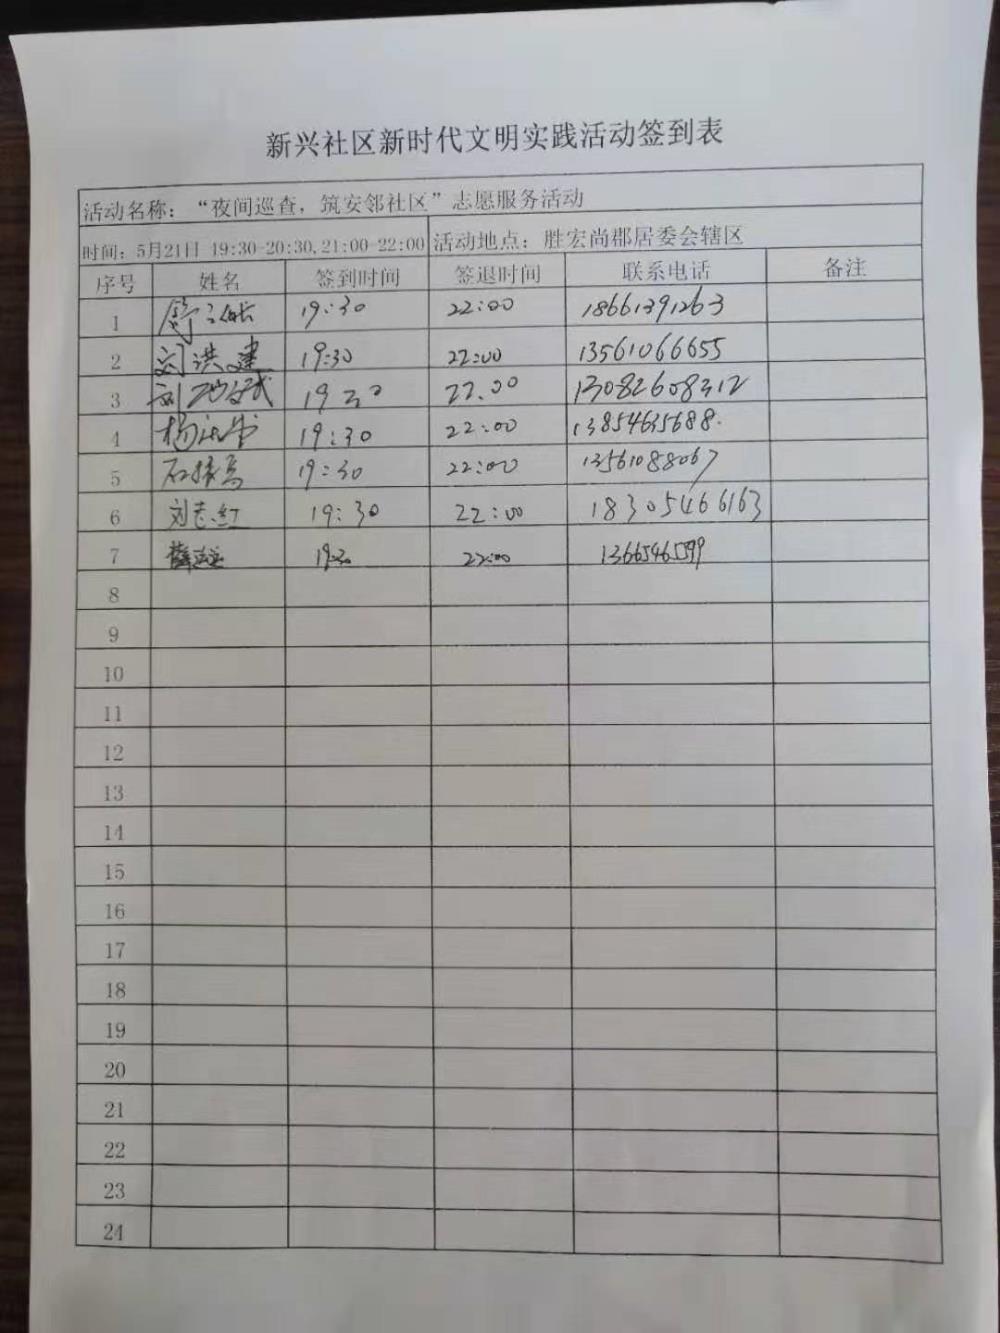 新兴社区新时代文明实践活动签到表
活动名称：“夜间巡查，筑安邻社区”志愿服务活动
时间：5月21日 19:30-20:30,21:00-22:00 活动地点：胜宏尚郡居委会辖区
序号 姓名 签到时间 签退时间 联系电话 备注
1 19:30 22:00 18661391263
2 刘洪建 19:30 22:00 13561066655
3 刘 19:30 22:00 13082608312
4 杨 19:30 22:00 13854635688
5 石振亮 19:30 22:00 13561088067
6 刘志红 19:30 22:00 18305466163
7 薛 19:30 22:00 1366546599
8
9
10
11
12
13
14
15
16
17
18
19
20
21
22
23
24